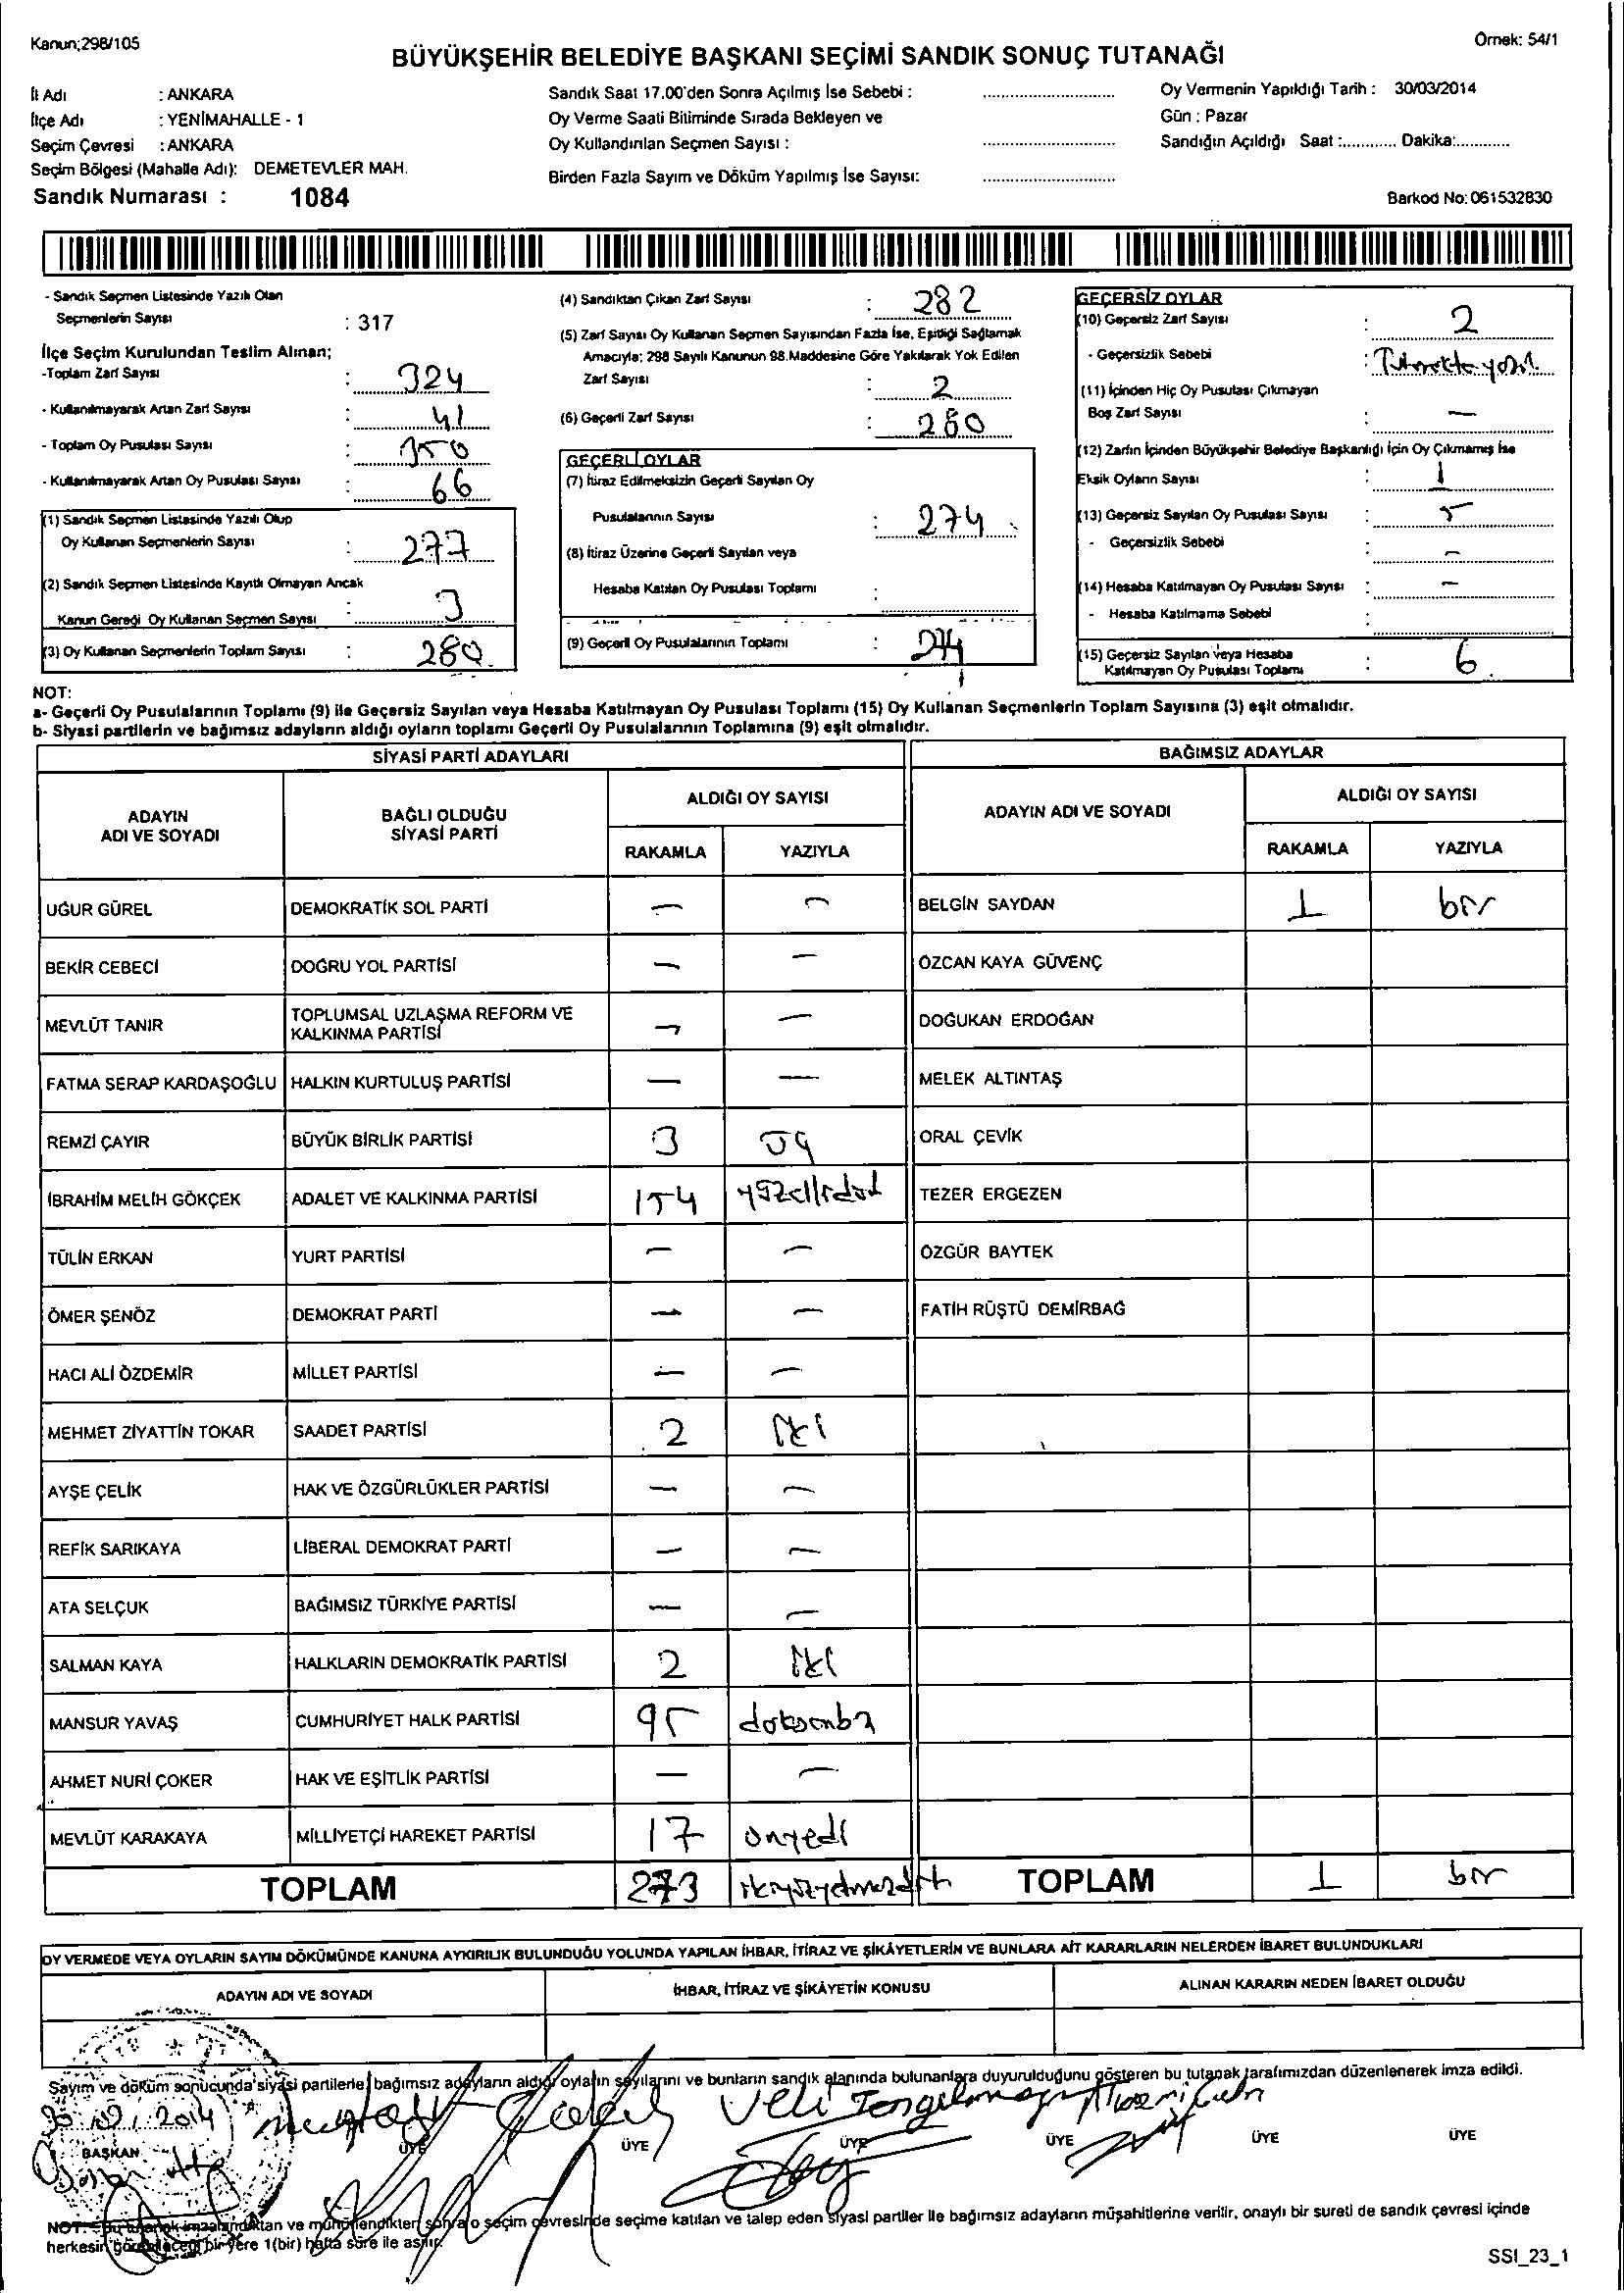 Kanun;298/105
Örnek: 54/1
BÜYÜKŞEHİR BELEDİYE BAŞKANI SEÇİMİ SANDIK SONUÇ TUTANAĞI
İl Adı : ANKARA
İlçe Adı : YENİMAHALLE - 1
Seçim Çevresi : ANKARA
Seçim Bölgesi (Mahalle Adı): DEMETEVLER MAH.
Sandık Numarası : 1084
Sandık Saat 17.00'den Sonra Açılmış İse Sebebi :
Oy Verme Saati Bitiminde Sırada Bekleyen ve
Oy Kullandırılan Seçmen Sayısı :
Birden Fazla Sayım ve Döküm Yapılmış İse Sayısı:
Oy Vermenin Yapıldığı Tarih : 30/03/2014
Gün : Pazar
Sandığın Açıldığı Saat :............ Dakika:............
Barkod No: 061532830
- Sandık Seçmen Listesinde Yazılı Olan
Seçmenlerin Sayısı : 317
İlçe Seçim Kurulundan Teslim Alınan;
-Toplam Zarf Sayısı : 324
- Kullanılmayarak Artan Zarf Sayısı : 41
- Toplam Oy Pusulası Sayısı : 350
- Kullanılmayarak Artan Oy Pusulası Sayısı : 66
(1) Sandık Seçmen Listesinde Yazılı Olup
Oy Kullanan Seçmenlerin Sayısı : 277
(2) Sandık Seçmen Listesinde Kayıtlı Olmayan Ancak
Kanun Gereği Oy Kullanan Seçmen Sayısı : 3
(3) Oy Kullanan Seçmenlerin Toplam Sayısı : 280
(4) Sandıktan Çıkan Zarf Sayısı : 282
(5) Zarf Sayısı Oy Kullanan Seçmen Sayısından Fazla İse, Eşitliği Sağlamak
Amacıyla; 298 Sayılı Kanunun 98.Maddesine Göre Yakılarak Yok Edilen
Zarf Sayısı : 2
(6) Geçerli Zarf Sayısı : 280
GEÇERLİ OYLAR
(7) İtiraz Edilmeksizin Geçerli Sayılan Oy
Pusulalarının Sayısı : 274
(8) İtiraz Üzerine Geçerli Sayılan veya
Hesaba Katılan Oy Pusulası Toplamı :
(9) Geçerli Oy Pusulalarının Toplamı : 274
GEÇERSİZ OYLAR
(10) Geçersiz Zarf Sayısı : 2
- Geçersizlik Sebebi :
(11) İçinden Hiç Oy Pusulası Çıkmayan
Boş Zarf Sayısı : —
(12) Zarfın İçinden Büyükşehir Belediye Başkanlığı İçin Oy Çıkmamış İse
Eksik Oyların Sayısı : 1
(13) Geçersiz Sayılan Oy Pusulası Sayısı : 5
- Geçersizlik Sebebi : —
(14) Hesaba Katılmayan Oy Pusulası Sayısı : —
- Hesaba Katılmama Sebebi :
(15) Geçersiz Sayılan veya Hesaba
Katılmayan Oy Pusulası Toplamı : 6
NOT:
a- Geçerli Oy Pusulalarının Toplamı (9) ile Geçersiz Sayılan veya Hesaba Katılmayan Oy Pusulası Toplamı (15) Oy Kullanan Seçmenlerin Toplam Sayısına (3) eşit olmalıdır.
b- Siyasi partilerin ve bağımsız adayların aldığı oyların toplamı Geçerli Oy Pusulalarının Toplamına (9) eşit olmalıdır.
SİYASİ PARTİ ADAYLARI BAĞIMSIZ ADAYLAR
ADAYIN ADI VE SOYADI BAĞLI OLDUĞU SİYASİ PARTİ ALDIĞI OY SAYISI ADAYIN ADI VE SOYADI ALDIĞI OY SAYISI
RAKAMLA YAZIYLA RAKAMLA YAZIYLA
UĞUR GÜREL DEMOKRATİK SOL PARTİ — — BELGİN SAYDAN 1 bir
BEKİR CEBECİ DOĞRU YOL PARTİSİ — — ÖZCAN KAYA GÜVENÇ
MEVLÜT TANIR TOPLUMSAL UZLAŞMA REFORM VE KALKINMA PARTİSİ — — DOĞUKAN ERDOĞAN
FATMA SERAP KARDAŞOĞLU HALKIN KURTULUŞ PARTİSİ — — MELEK ALTINTAŞ
REMZİ ÇAYIR BÜYÜK BİRLİK PARTİSİ 3 üç ORAL ÇEVİK
İBRAHİM MELİH GÖKÇEK ADALET VE KALKINMA PARTİSİ 154 yüzellidört TEZER ERGEZEN
TÜLİN ERKAN YURT PARTİSİ — — ÖZGÜR BAYTEK
ÖMER ŞENÖZ DEMOKRAT PARTİ — — FATİH RÜŞTÜ DEMİRBAĞ
HACI ALİ ÖZDEMİR MİLLET PARTİSİ — —
MEHMET ZİYATTİN TOKAR SAADET PARTİSİ 2 iki
AYŞE ÇELİK HAK VE ÖZGÜRLÜKLER PARTİSİ — —
REFİK SARIKAYA LİBERAL DEMOKRAT PARTİ — —
ATA SELÇUK BAĞIMSIZ TÜRKİYE PARTİSİ — —
SALMAN KAYA HALKLARIN DEMOKRATİK PARTİSİ 2 iki
MANSUR YAVAŞ CUMHURİYET HALK PARTİSİ 95 doksanbeş
AHMET NURİ ÇOKER HAK VE EŞİTLİK PARTİSİ — —
MEVLÜT KARAKAYA MİLLİYETÇİ HAREKET PARTİSİ 17 onyedi
TOPLAM 273 TOPLAM 1 bir
OY VERMEDE VEYA OYLARIN SAYIM DÖKÜMÜNDE KANUNA AYKIRILIK BULUNDUĞU YOLUNDA YAPILAN İHBAR, İTİRAZ VE ŞİKÂYETLERİN VE BUNLARA AİT KARARLARIN NELERDEN İBARET BULUNDUKLARI
ADAYIN ADI VE SOYADI İHBAR, İTİRAZ VE ŞİKÂYETİN KONUSU ALINAN KARARIN NEDEN İBARET OLDUĞU
Sayım ve döküm sonucunda siyasi partilerle bağımsız adayların aldığı oyların sayılarını ve bunların sandık alanında bulunanlara duyurulduğunu gösteren bu tutanak tarafımızdan düzenlenerek imza edildi.
Veli
BAŞKAN ÜYE ÜYE ÜYE ÜYE ÜYE ÜYE
NOT: Bu tutanak imzalandıktan ve mühürlendikten sonra o seçim çevresinde seçime katılan ve talep eden siyasi partiler ile bağımsız adayların müşahitlerine verilir, onaylı bir sureti de sandık çevresi içinde
herkesin görebileceği bir yere 1(bir) hafta süre ile asılır.
SSI_23_1